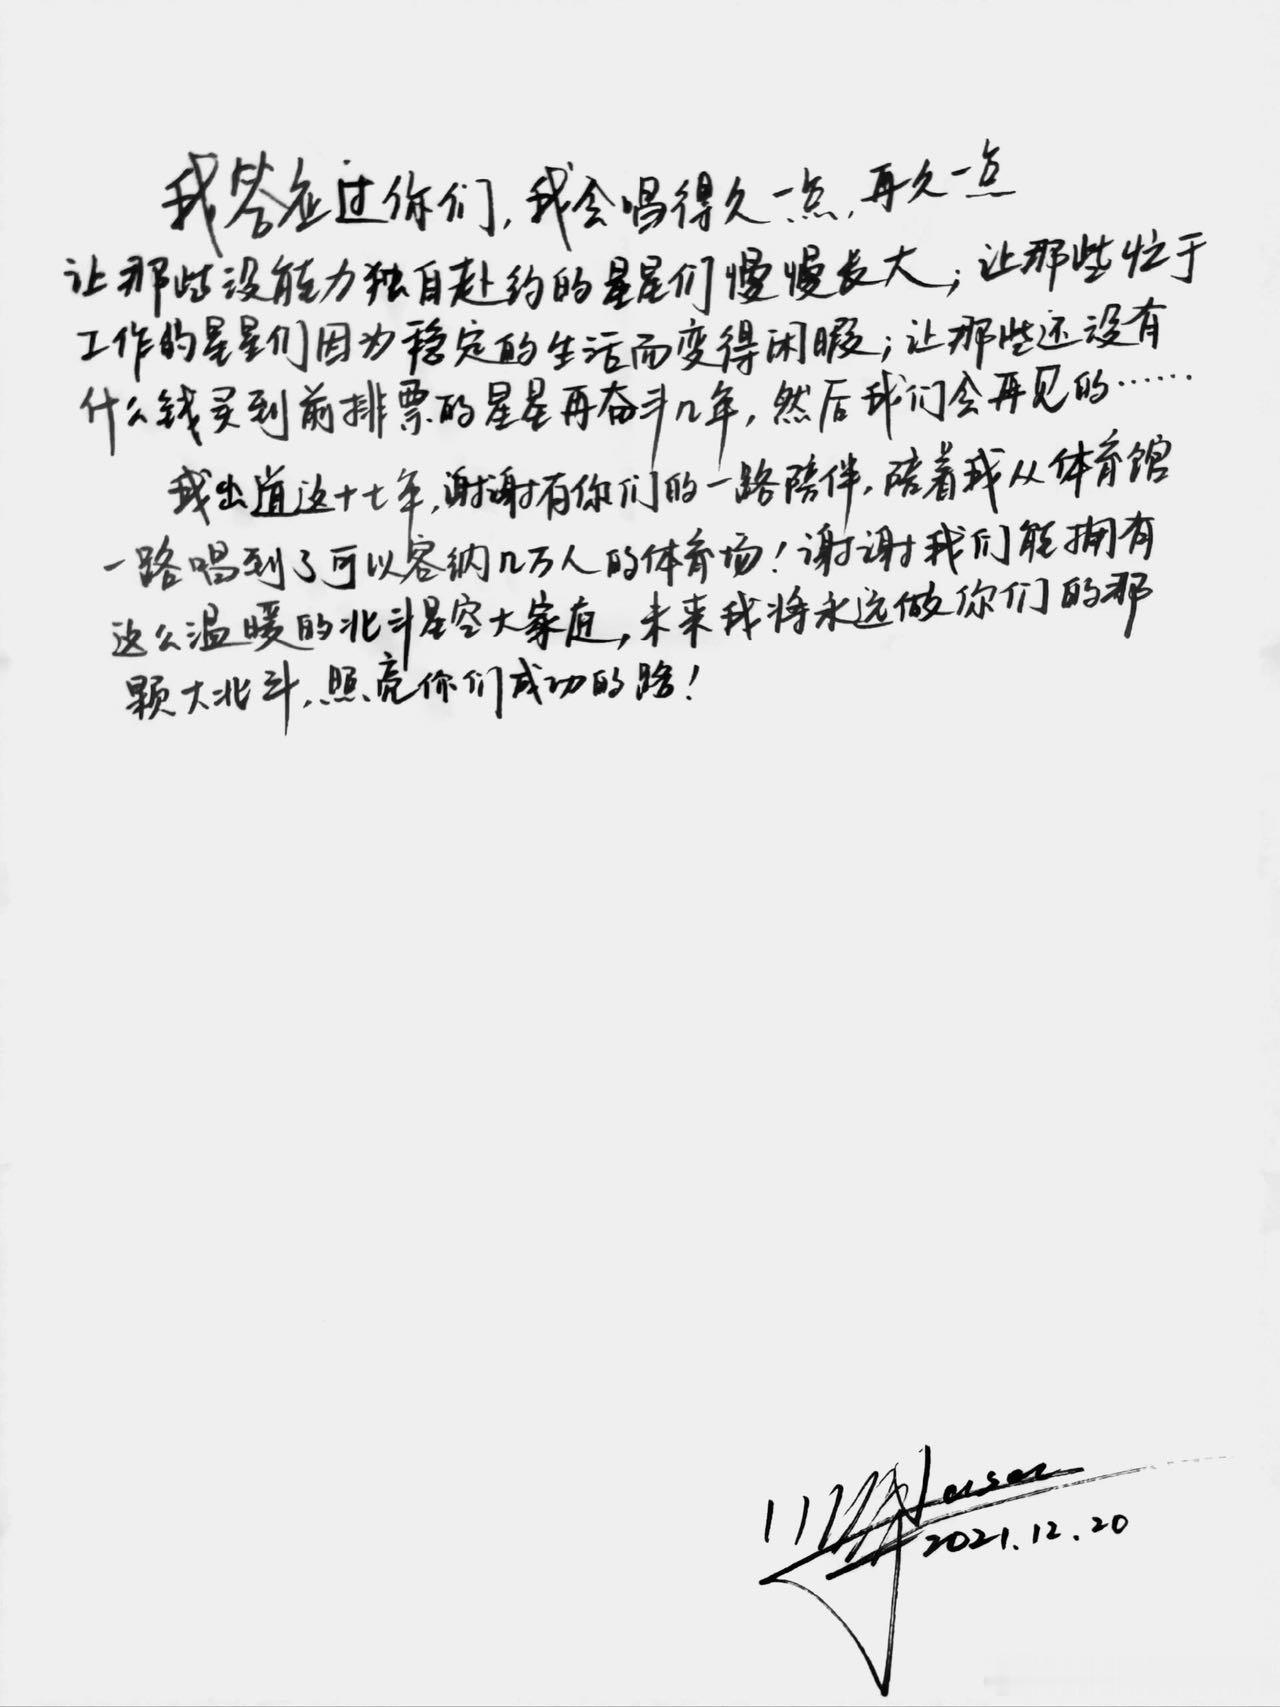 我答应过你们，我会唱得久一点，再久一点
让那些没能力独自赴约的星星们慢慢长大；让那些忙于
工作的星星们因为稳定的生活而变得闲暇；让那些还没有
什么钱买到前排票的星星再奋斗几年，然后我们会再见的……
我出道这十七年，谢谢有你们的一路陪伴，陪着我从体育馆
一路唱到了可以容纳几万人的体育场！谢谢我们能拥有
这么温暖的北斗星空大家庭，未来我将永远做你们的那
颗大北斗，照亮你们成功的路！
2021.12.20